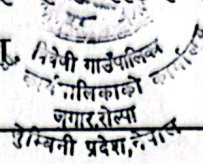 त्रिवेणी गाउँपालिका
कार्यपालिकाको कार्यालय
जगार, रोल्पा
लुम्बिनी प्रदेश, नेपाल